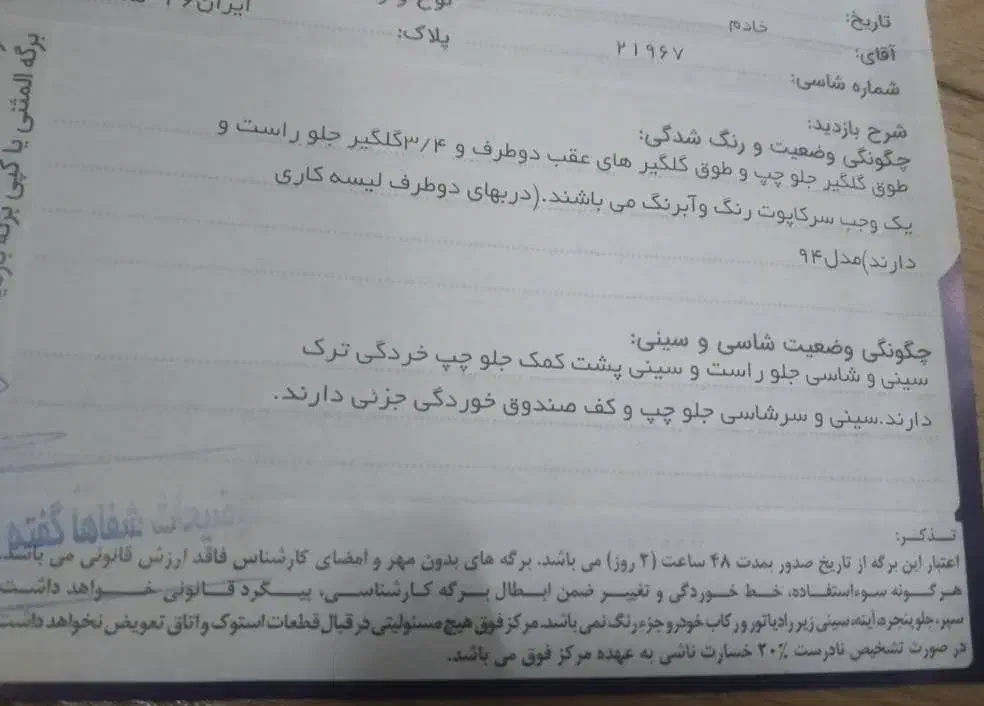 تاریخ:
آقای: خادم
شماره شاسی: ۲۱۹۶۷ پلاک:
شرح بازدید:
چگونگی وضعیت و رنگ شدگی:
طوق گلگیر جلو چپ و طوق گلگیر های عقب دوطرف و ۳/۴گلگیر جلو راست و
یک وجب سرکاپوت رنگ وآبرنگ می باشند.(دربهای دوطرف لیسه کاری
دارند)مدل۹۴
چگونگی وضعیت شاسی و سینی:
سینی و شاسی جلو راست و سینی پشت کمک جلو چپ خردگی ترک
دارند.سینی و سرشاسی جلو چپ و کف صندوق خوردگی جزئی دارند.
توضیحات شفاها گفته
تذکر:
اعتبار این برگه از تاریخ صدور بمدت ۴۸ ساعت (۲ روز) می باشد. برگه های بدون مهر و امضای کارشناس فاقد ارزش قانونی می باشد.
هرگونه سوءاستفاده، خط خوردگی و تغییر ضمن ابطال برگه کارشناسی، پیگرد قانونی خواهد داشت
سپر، جلو پنجره، آینه، سینی زیر رادیاتور و رکاب خودرو جزء رنگ نمی باشد. مرکز فوق هیچ مسئولیتی در قبال قطعات استوک و اتاق تعویض نخواهد داشت
در صورت تشخیص نادرست ۲۰٪ خسارت ناشی به عهده مرکز فوق می باشد.
برگه المثنی یا کپی برگه